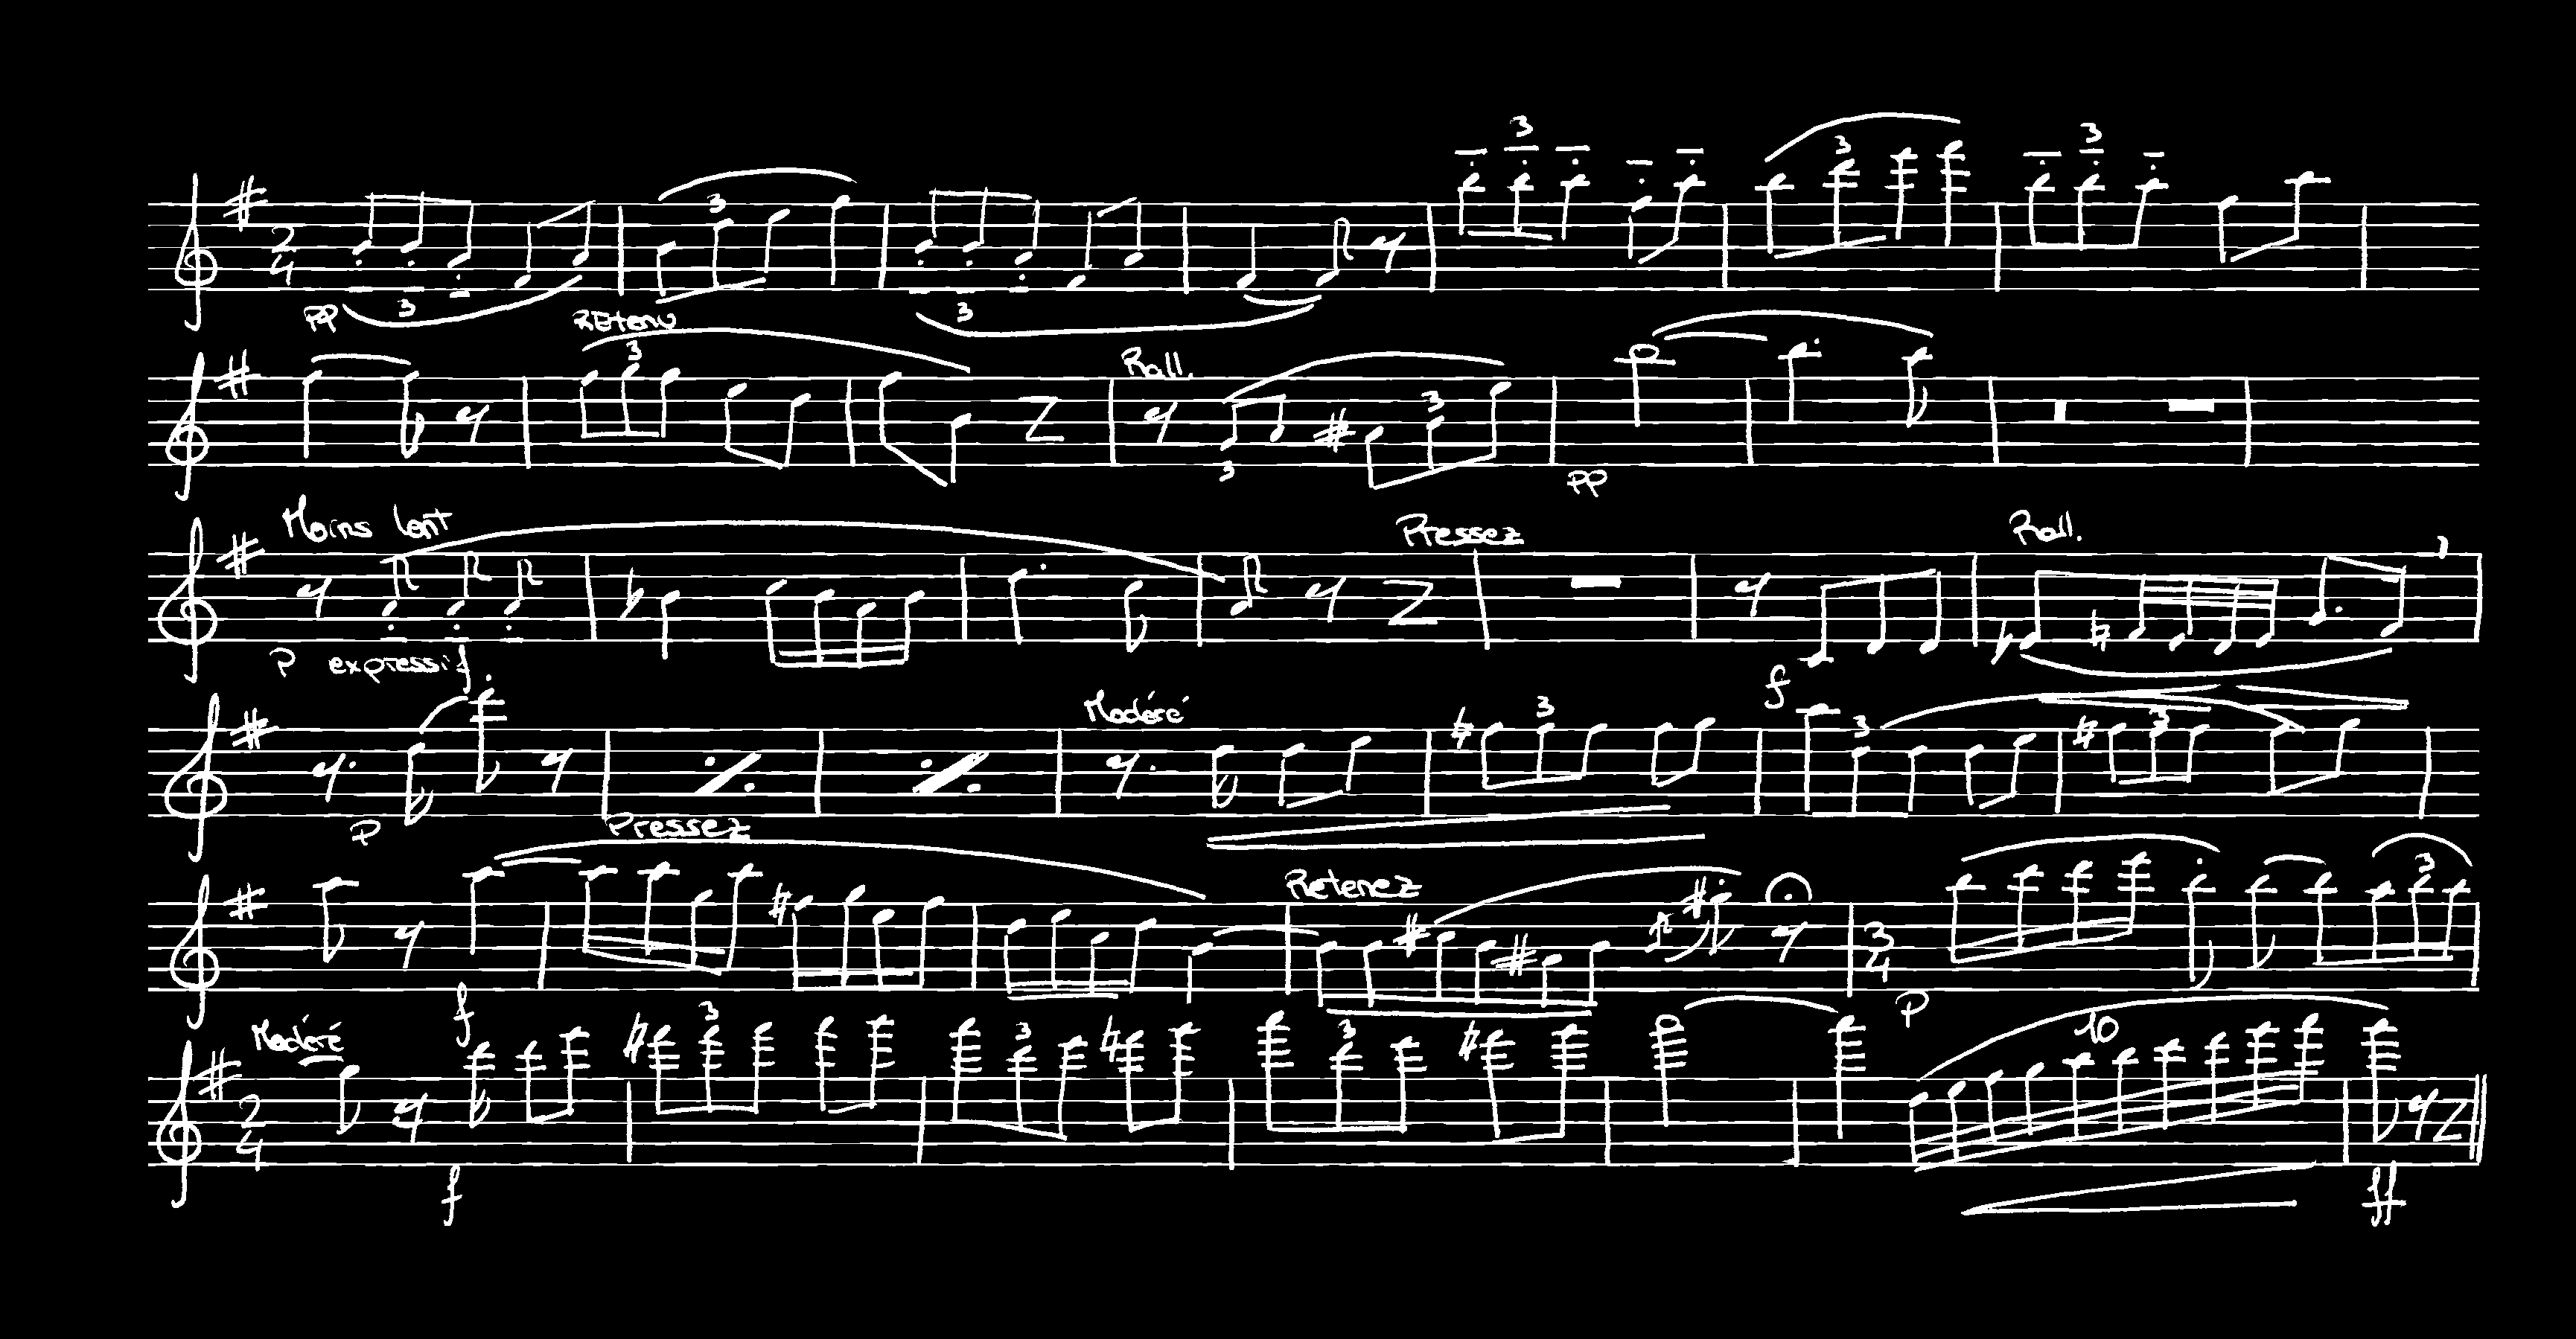 3 3
3 3
2 4
PP 3 REtenu 3
3 Rall. 3
3 PP
Moins lent Pressez Rall.
P expressif f
Modéré 3 3 3
P Pressez
Retenez 3
3 4
f P
Modéré 3 3 3 10
2 4
f ff